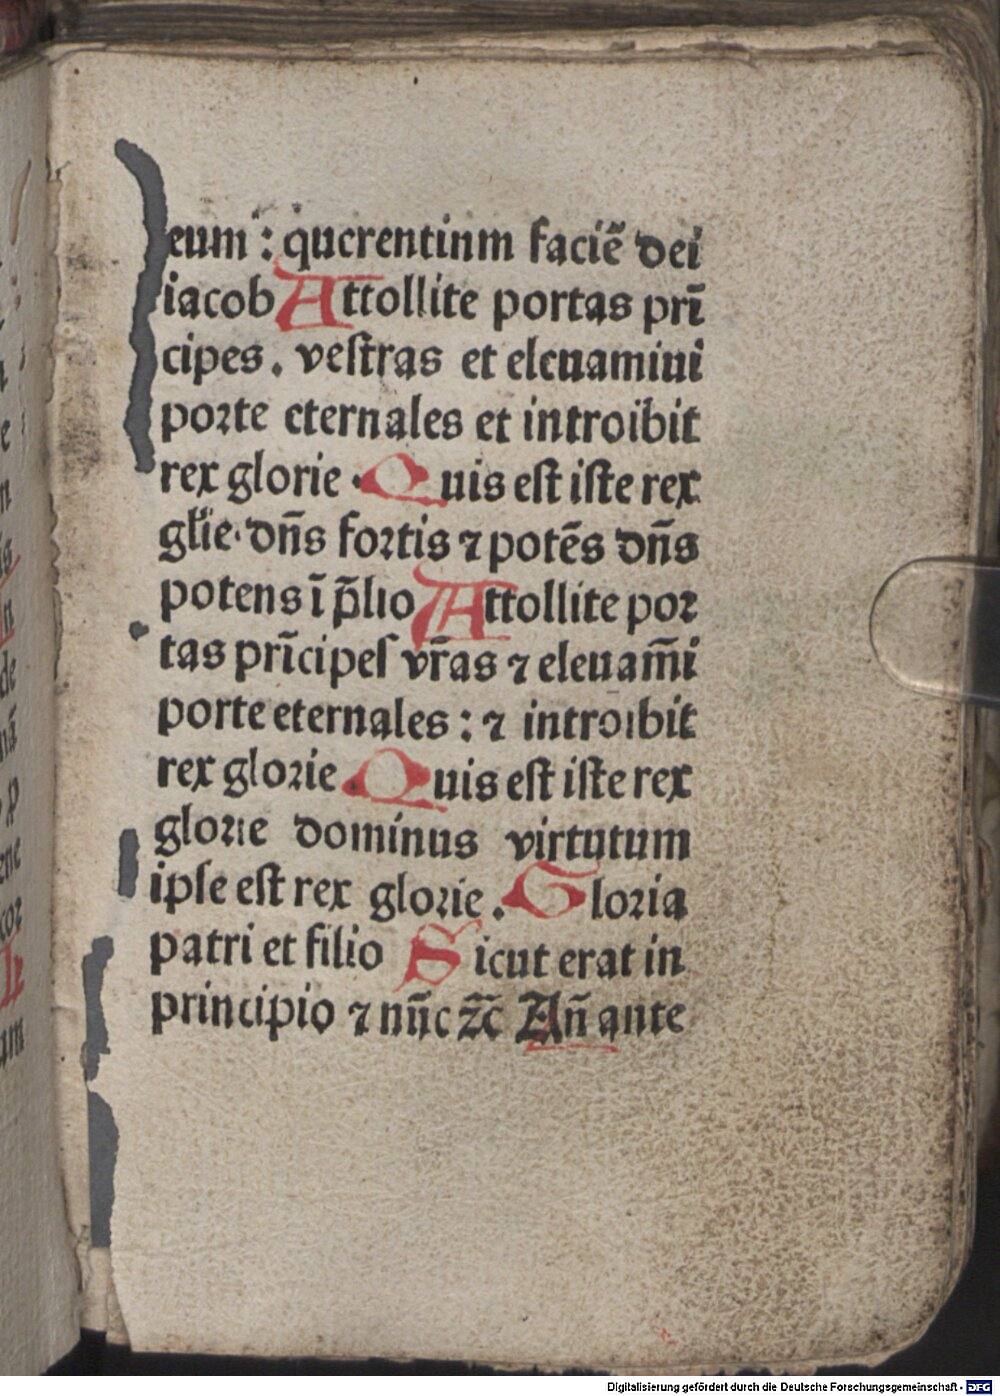 eum : qucrentinm faciē dei
iacob Attollite portas prī
cipes . vestras et elcuamiui
porte eternales et introibit
rex glorie . Quis est iste rex
gl̄ie . dn̄s fortis ⁊ potēs dn̄s
potens ī p̄lio Attollite por
tas prīcipes vr̄as ⁊ eleuam̄i
porte eternales : ⁊ introibit
rex glorie . Quis est iste rex
glorie dominus virtutum
ipse est rex glorie . Gloria
patri et filio Sicut erat in
principio ⁊ nūc ⁊c̄ An̄ ante
Digitalisierung gefördert durch die Deutsche Forschungsgemeinschaft - DFG